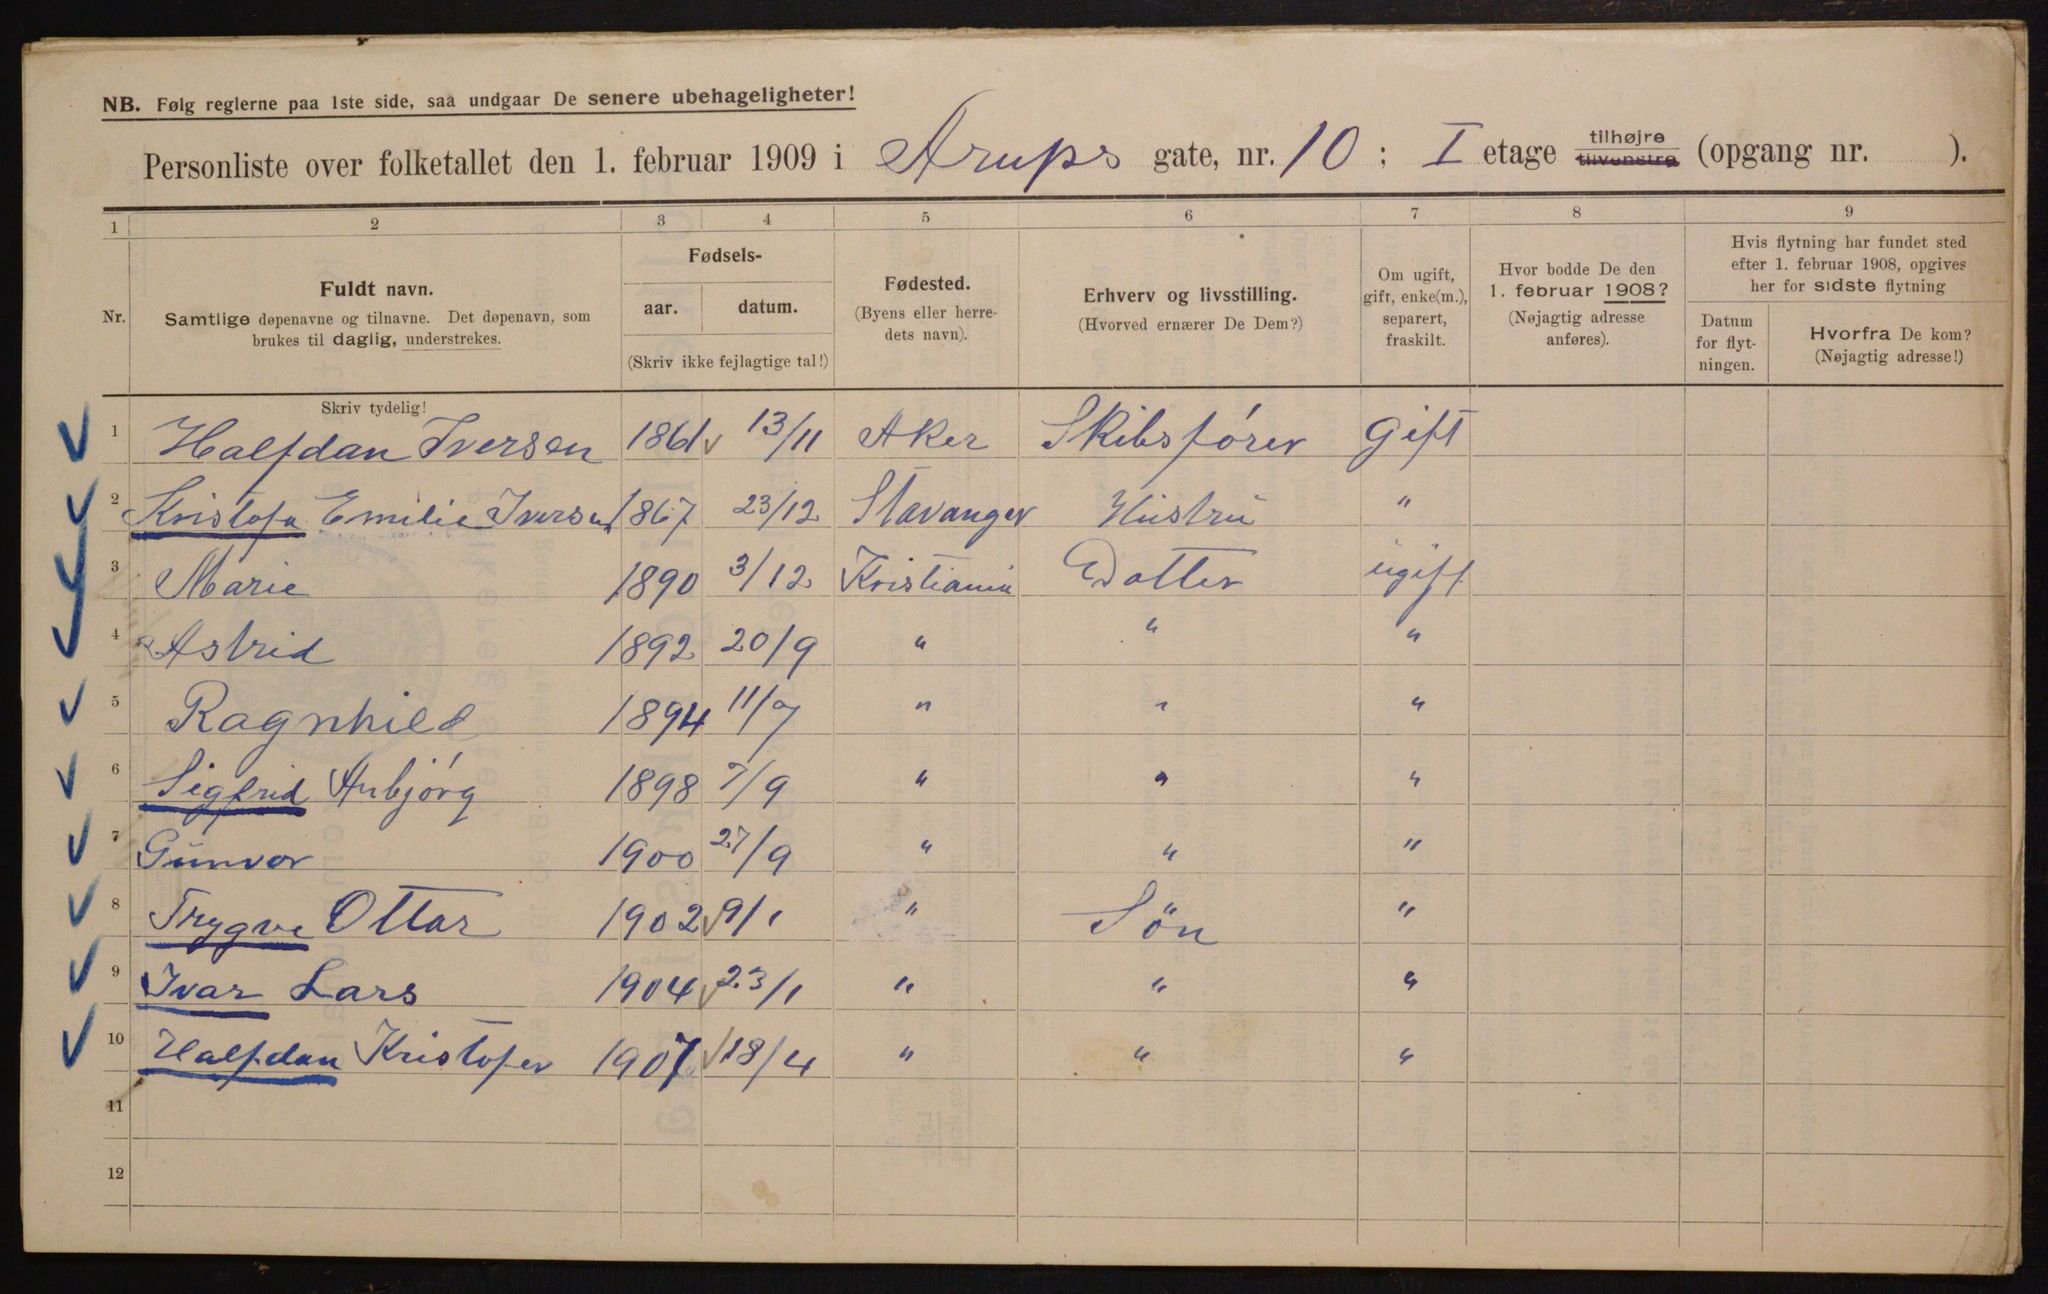 NB. Følg reglerne paa 1ste side, saa undgaar De senere ubehageligheter!
Personliste over folketallet den 1. februar 1909 i Arups gate, nr. 10 ; I etage tilhøjre tilvenstre (opgang nr. ).
1 2 3 4 5 6 7 8 9
Nr.
Fuldt navn.
Samtlige døpenavne og tilnavne. Det døpenavn, som
brukes til daglig, understrekes.
Skriv tydelig!
Fødsels-
aar. datum.
(Skriv ikke fejlagtige tal!)
Fødested.
(Byens eller herre-
dets navn).
Erhverv og livsstilling.
(Hvorved ernærer De Dem?)
Om ugift,
gift, enke(m.),
separert,
fraskilt.
Hvor bodde De den
1. februar 1908?
(Nøjagtig adresse
anføres).
Hvis flytning har fundet sted
efter 1. februar 1908, opgives
her for sidste flytning
Datum
for flyt-
ningen.
Hvorfra De kom?
(Nøjagtig adresse!)
1 Halfdan Iversen 1861 13/11 Aker Skibsfører Gift
2 Kristofa Emilie Iversen 1867 23/12 Stavanger Hustru "
3 Marie 1890 3/12 Kristiania Datter ugift
4 Astrid 1892 20/9 " " "
5 Ragnhild 1894 11/7 " " "
6 Sigfrid Anbjörg 1898 7/9 " " "
7 Gunvor 1900 27/9 " " "
8 Trygve Ottar 1902 9/1 " Sön "
9 Ivar Lars 1904 23/1 " " "
10 Halfdan Kristofer 1907 18/4 " " "
11
12